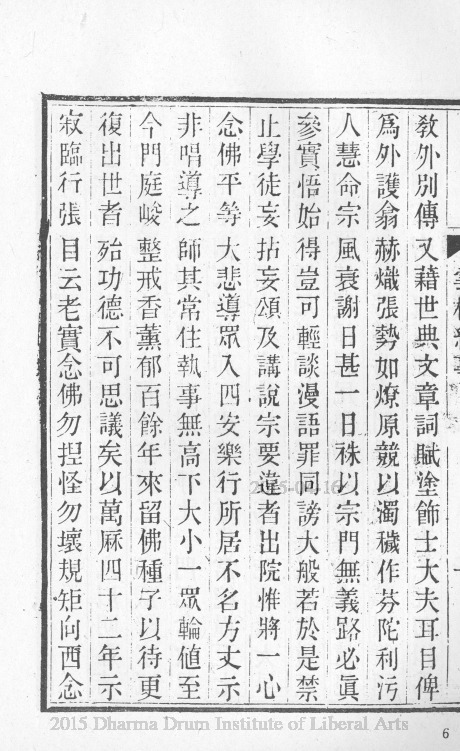 教外別傳又藉世典文章詞賦塗飾士大夫耳目俾
爲外護翕赫熾張勢如燎原競以濁穢作芬陀利污
人慧命宗風衰謝日甚一日袾以宗門無義路必眞
參實悟始得豈可輕談漫語罪同謗大般若於是禁
止學徒妄拈妄頌及講說宗要違者出院惟將一心
念佛平等大悲導眾入四安樂行所居不名方丈示
非唱導之師其常住執事無高下大小一眾輪值至
今門庭峻整戒香薰郁百餘年來留佛種子以待更
復出世者殆功德不可思議矣以萬厤四十二年示
寂臨行張目云老實念佛勿揑怪勿壞規矩向西念
2015 Dharma Drum Institute of Liberal Arts
6